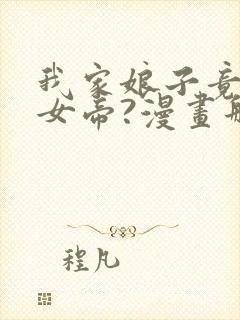 我家娘子竟
女帝?漫畫
程凡